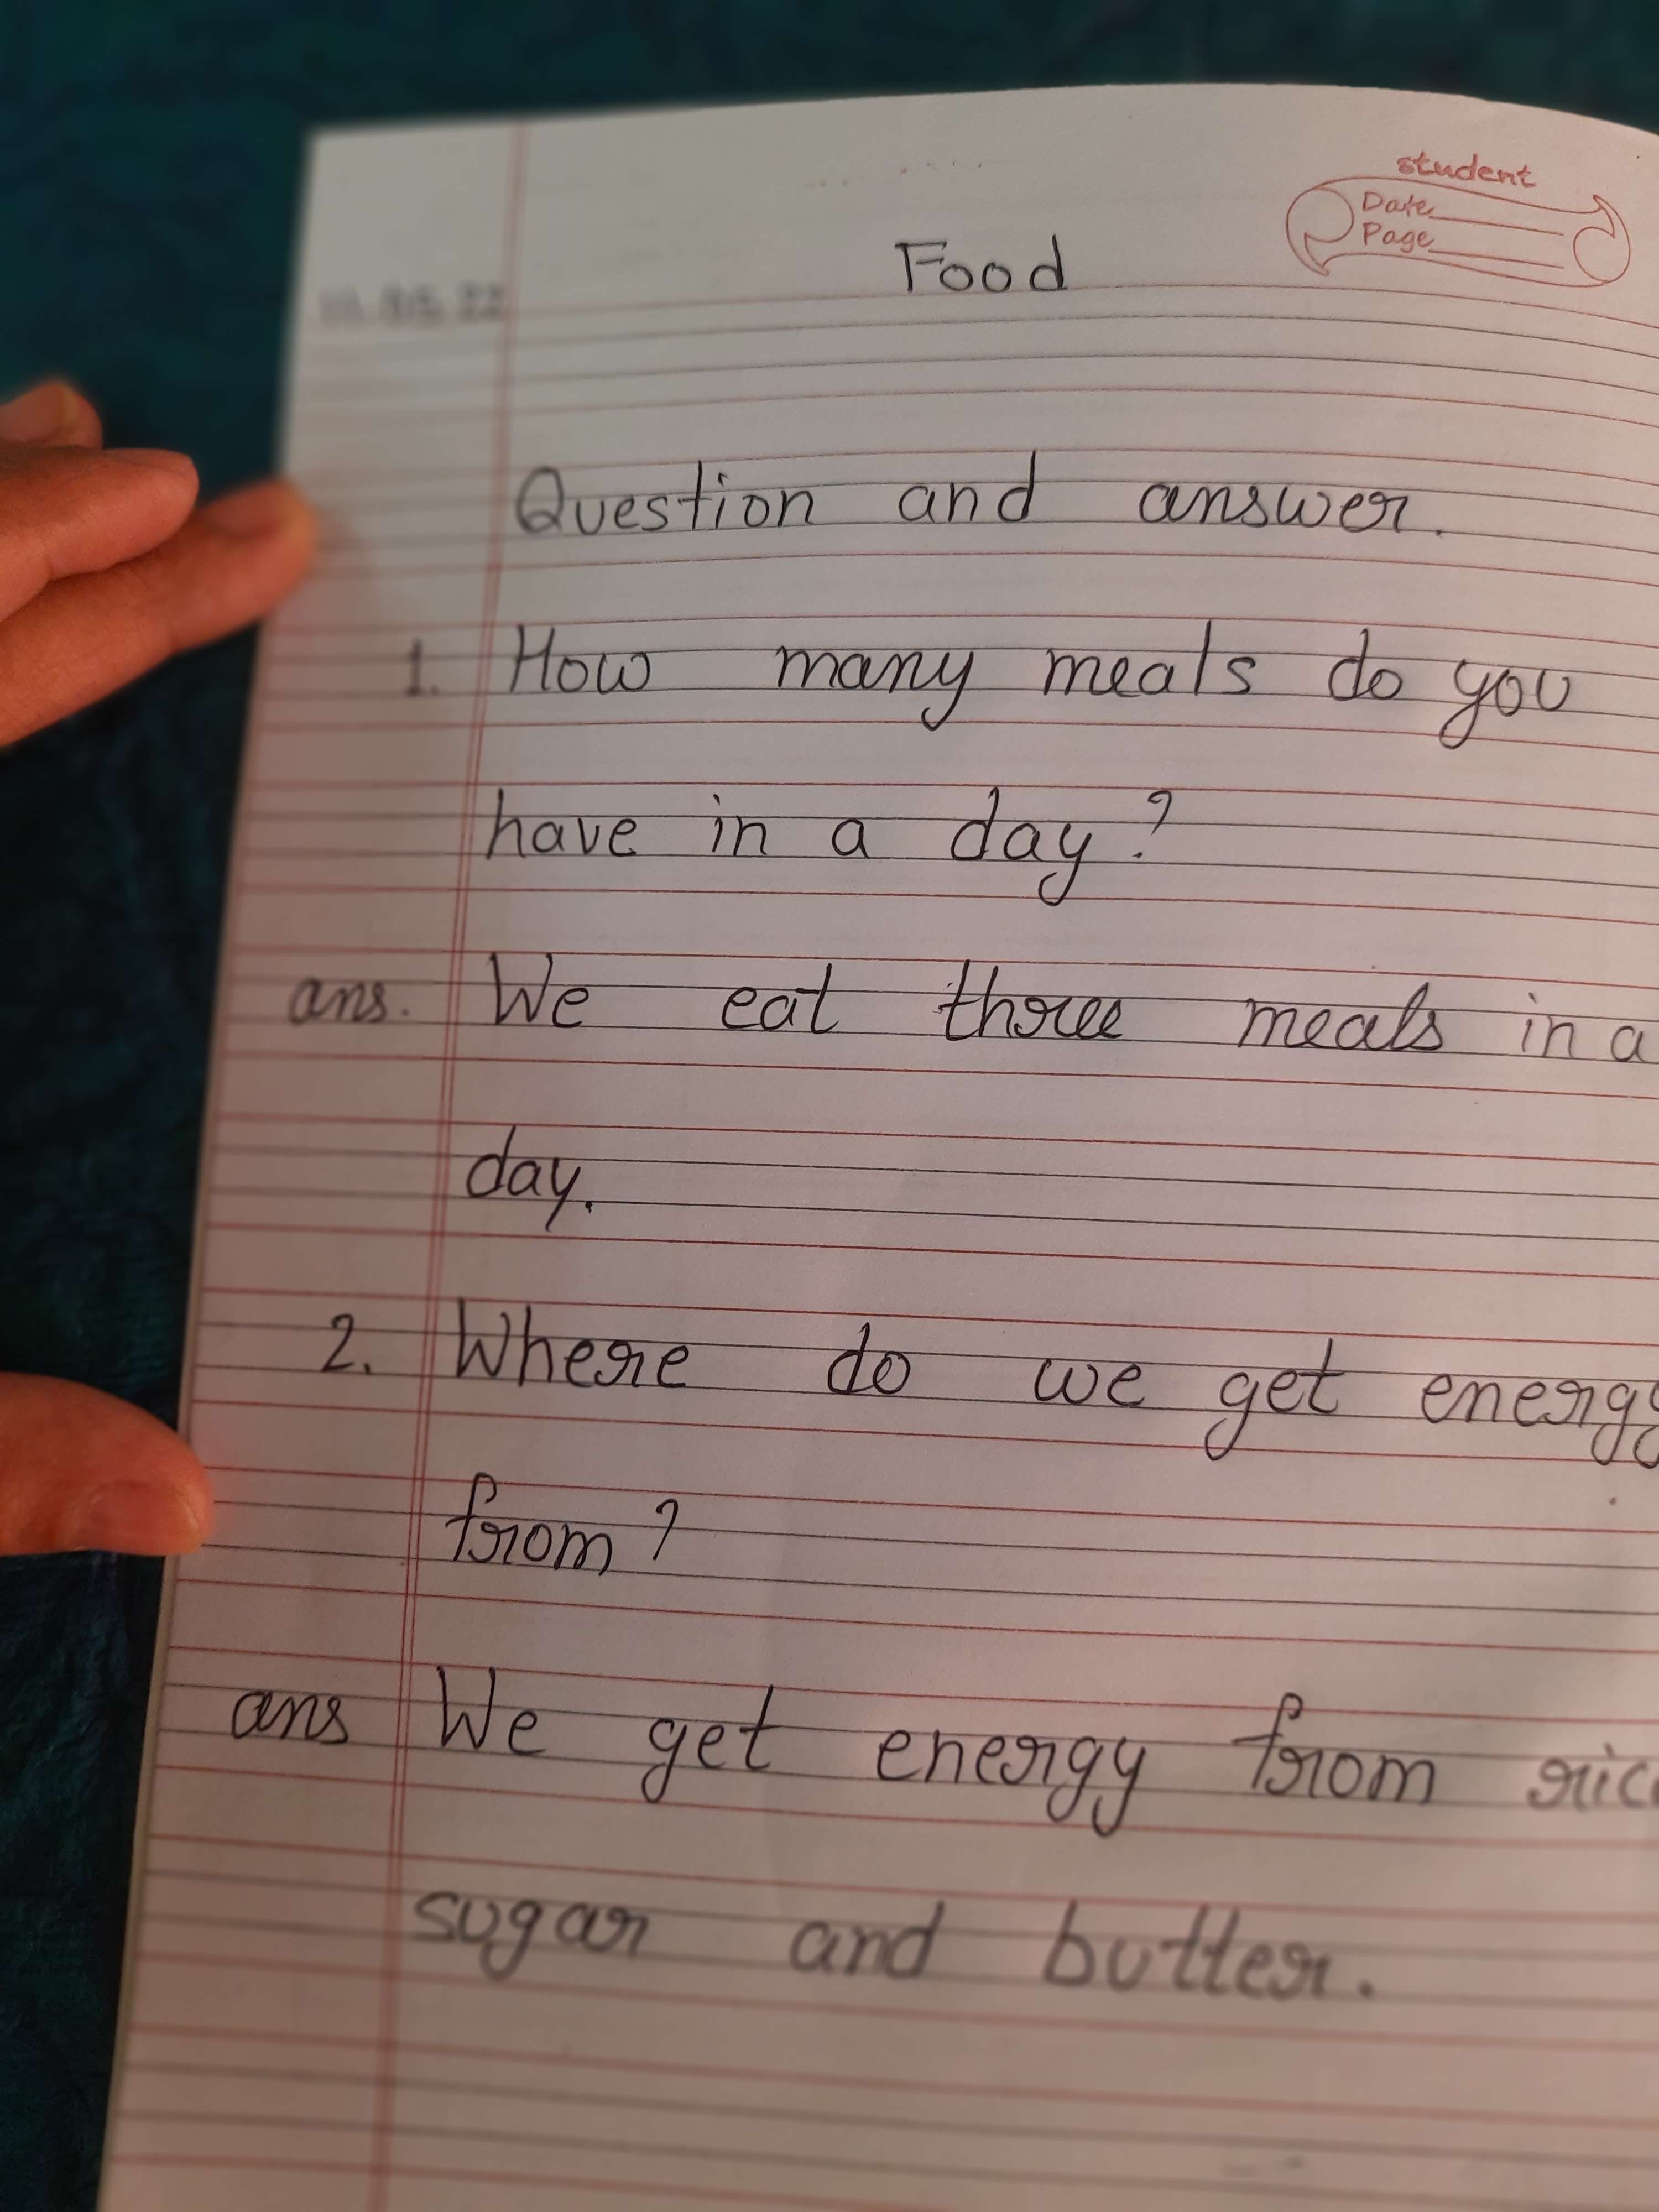 student
Date
Page
Food
Question and answer.
1. How many meals do you
have in a day?
ans. We eat three meals in a
day.
2. Where do we get energy
from?
ans We get energy from
sugar and butter.